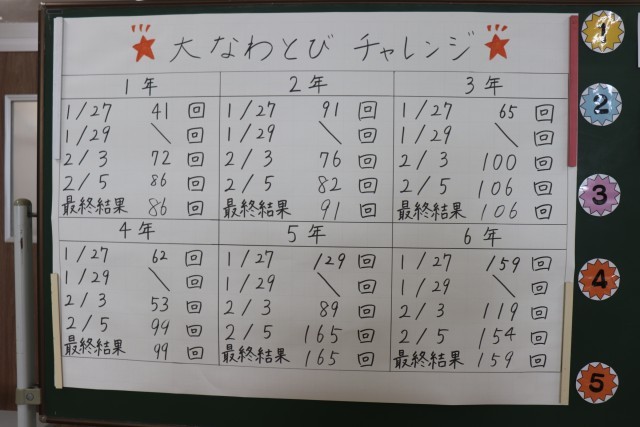 大なわとびチャレンジ
1年 2年 3年
1/27 41回 1/27 91回 1/27 65回
1/29 \回 1/29 \回 1/29 \回
2/3 72回 2/3 76回 2/3 100回
2/5 86回 2/5 82回 2/5 106回
最終結果 86回 最終結果 91回 最終結果 106回
4年 5年 6年
1/27 62回 1/27 129回 1/27 159回
1/29 \回 1/29 \回 1/29 \回
2/3 53回 2/3 89回 2/3 119回
2/5 99回 2/5 165回 2/5 154回
最終結果 99回 最終結果 165回 最終結果 159回
1
2
3
4
5